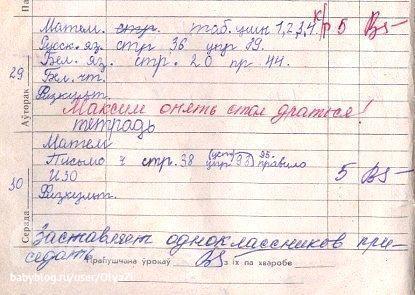 Матем. стр. таб. умн 1,2,3,4. к/р 5
Русск. яз. стр 36 упр 89.
Бел. яз. стр. 20 пр 44.
29
Бел. чт.
Аўторак
Физкульт.
Максим опять стал драться!
тетрадь
Матем
Письмо ч стр. 38 (уст) упр 95. правило 5
ИЗО
30
Физкульт.
Серада
Заставляет одноклассников при-
седать
Прапушчана ўрокаў з іх па хваробе
babyblog.ru/user/Olya21